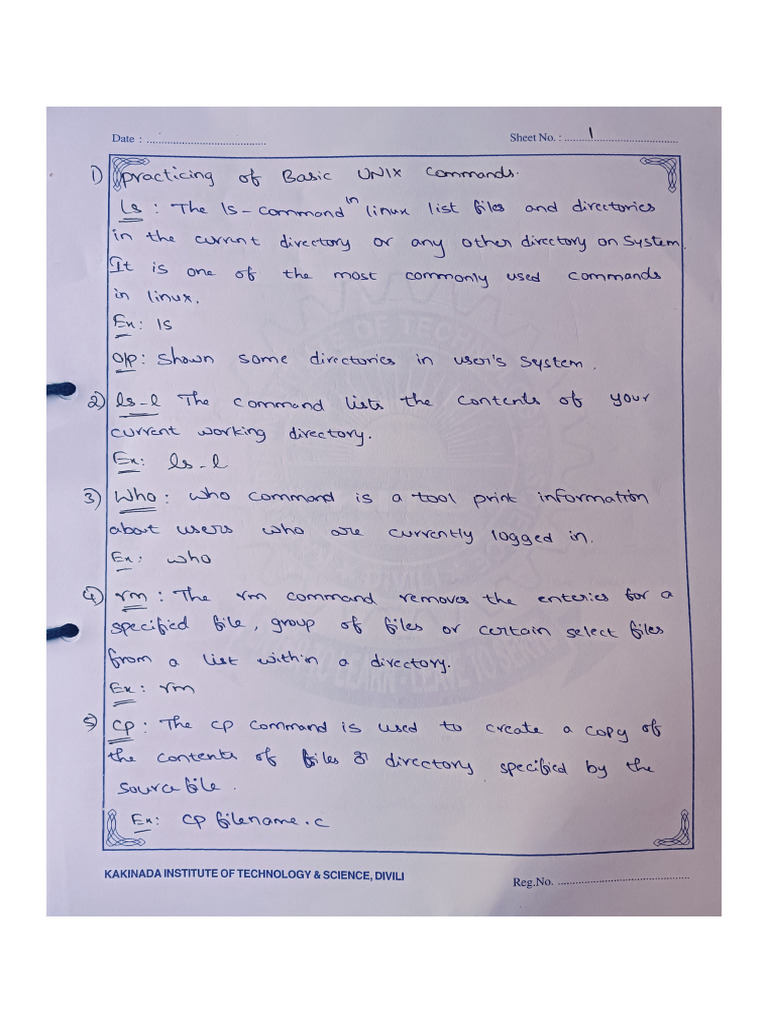 Date : ........................................
Sheet No. : ......1..............................
1) practicing of Basic UNIX Commands.
ls : The ls-command in linux list files and directories
in the current directory or any other directory on System.
It is one of the most commonly used commands
in linux.
Ex: ls
O/P: shown some directories in user's system.
2) ls-l The command lists the contents of your
current working directory.
Ex: ls-l
3) Who : who command is a tool print information
about users who are currently logged in.
Ex: who
4) rm : The rm command removes the enteries for a
specified file, group of files or certain select files
from a list within a directory.
Ex: rm
5) cp : The cp command is used to create a copy of
the contents of files & directory specified by the
source file.
Ex: cp filename.c
KAKINADA INSTITUTE OF TECHNOLOGY & SCIENCE, DIVILI
Reg.No. ............................................